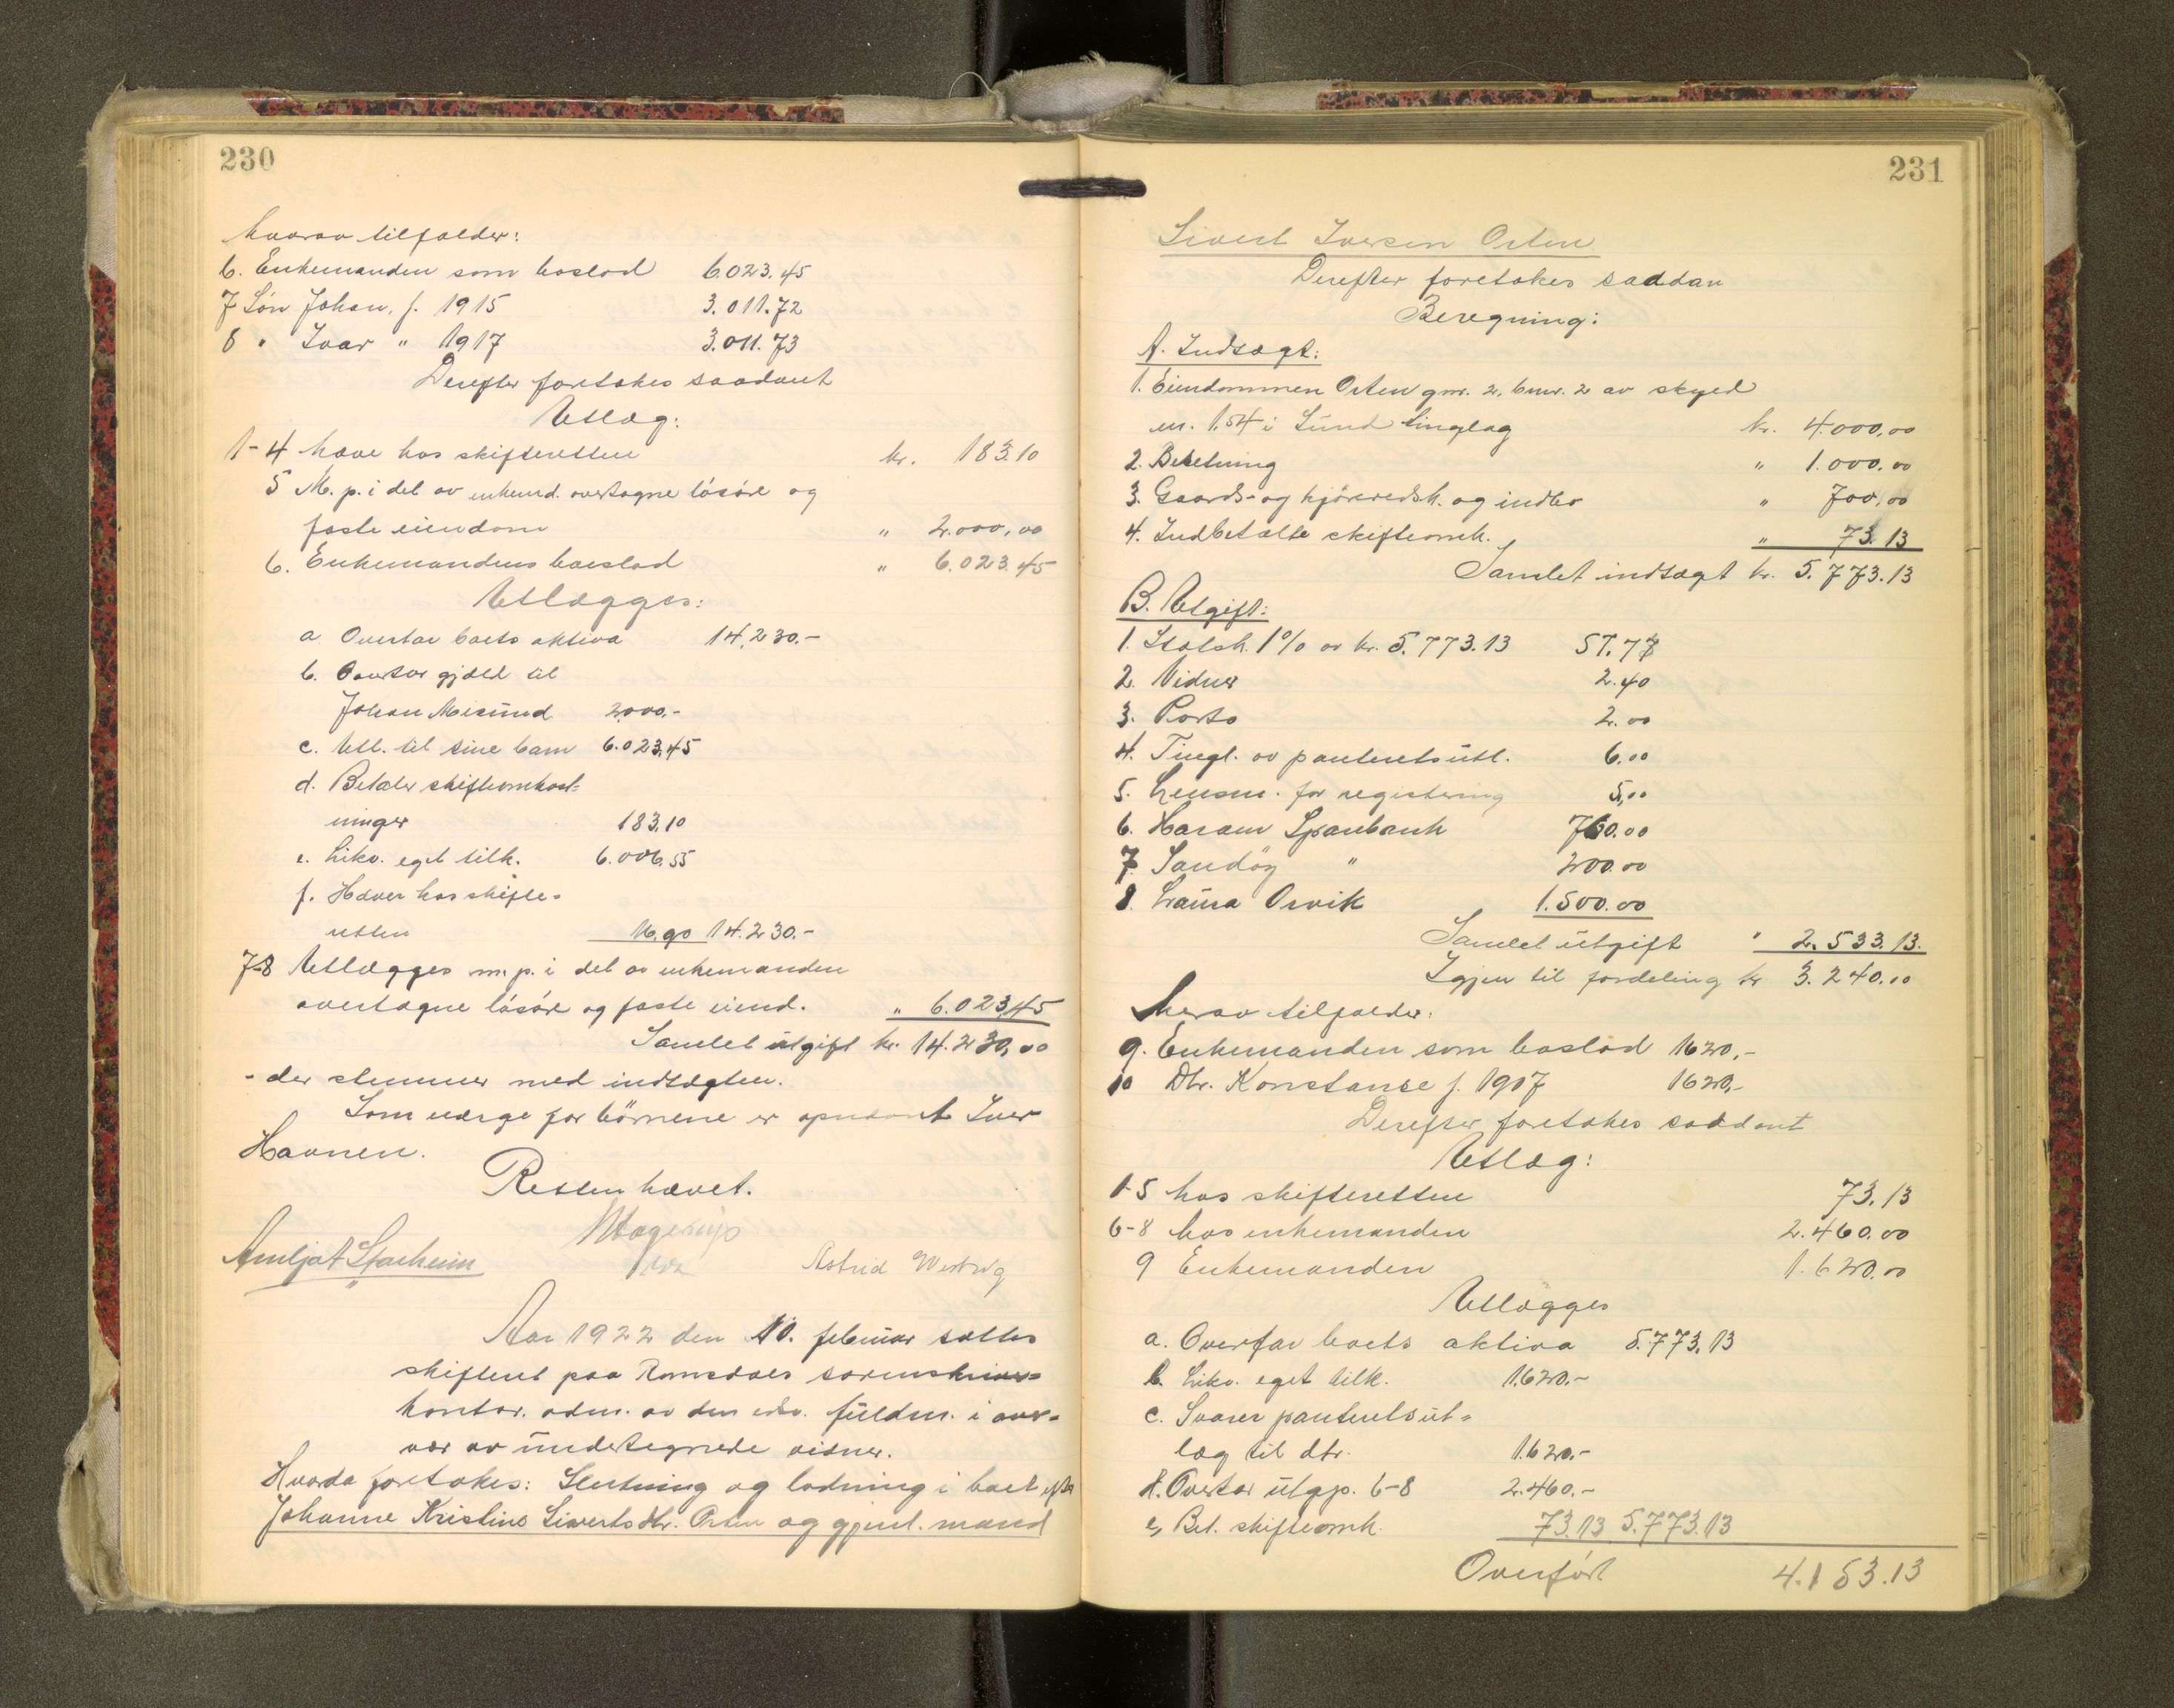 230
hvorav tilfalder:
6. Enkemanden som boslod 6.023.45
7 Søn Johan, f. 1915 3.011.72
8 " Ivar " 1917 3.011.73
Derefter foretokes saadant
Utlæg:
1-4 hæve hos skifteretten kr. 183.10
5 M. p. i det av enkemd. overtagne løsøre og
faste eiendom " 2.000,00
6. Enkemandens boeslod " 6.023.45
Utlægges:
a. Overtar boets aktiva 14.230.-
b. Overtar gjæld til
Johan Misund 2000.-
c. Utl. til sine barn 6.023,45
d. Betaler skifteomkost-
ninger 183.10
e. Likv. eget tilk. 6.006.55
f. Hæver hos skifte-
retten 16.90 14.230.-
7-8 Utlægges m. p. i det av enkemanden
overtagne løsøre og faste eiend. " 6.023,45
Samlet utgift kr. 14.230,00
- der stemmer med indtægten.
Som værge for börnene er opnævnt Iver
Havnen.
Retten hævet.
Astrid Westvig
Aar 1922 den 10. februar sattes
skifteret paa Romsdals sorenskriver-
kontor. adm. av den edsv. fuldm. i over-
vær av undertegnede vidner.
Hvorda foretokes: Slutning og lodning i boet efter
Johanne Kristine Sivertsdtr. Orten og gjenl. mand
231
Sivert Iversen Orten
Derefter foretokes saadan
Beregning:
A. Indtægt:
1. Eiendommen Orten gnr. 2, bnr. 2 av skyld
m. 1.54 i Sund tinglag kr. 4.000,00
2. Besetning " 1.000.00
3. Gaards- og kjöreredsk. og indbo " 700,00
4. Indbetalte skifteomk. " 73.13
Samlet indtægt kr. 5.773.13
B. Utgift:
1. Statsk. 1% av kr. 5.773.13 57.73
2. Vidner 2.40
3. Porto 2.00
4. Tingl. av panteretsutl. 6.00
5. Lensm. for registering 5,00
6. Haram Sparebank 760.00
7 Sandöy " 200.00
8. Laura Orvik 1.500.00
Samlet utgift " 2.533.13.
Igjen til fordeling kr 3.240.00
herav tilfalder:
9. Enkemanden som boslod 1620,-
10 Dtr. Konstanse f. 1907 1620,-
Derefter foretokes saadant
Utlæg:
1-5 hos skifteretten 73.13
6-8 hos enkemanden 2.460.00
9 Enkemanden 1.620.00
Utlægges
a. Overtar boets aktiva 5.773.13
b. Likv. eget tilk. 1.620.-
c. Svarer panteretsut-
læg til dtr. 1.620.-
d. Overtar utgp. 6-8 2.460.-
e, Bet. skifteomk. 73.13 5.773.13
Overført 4.153.13